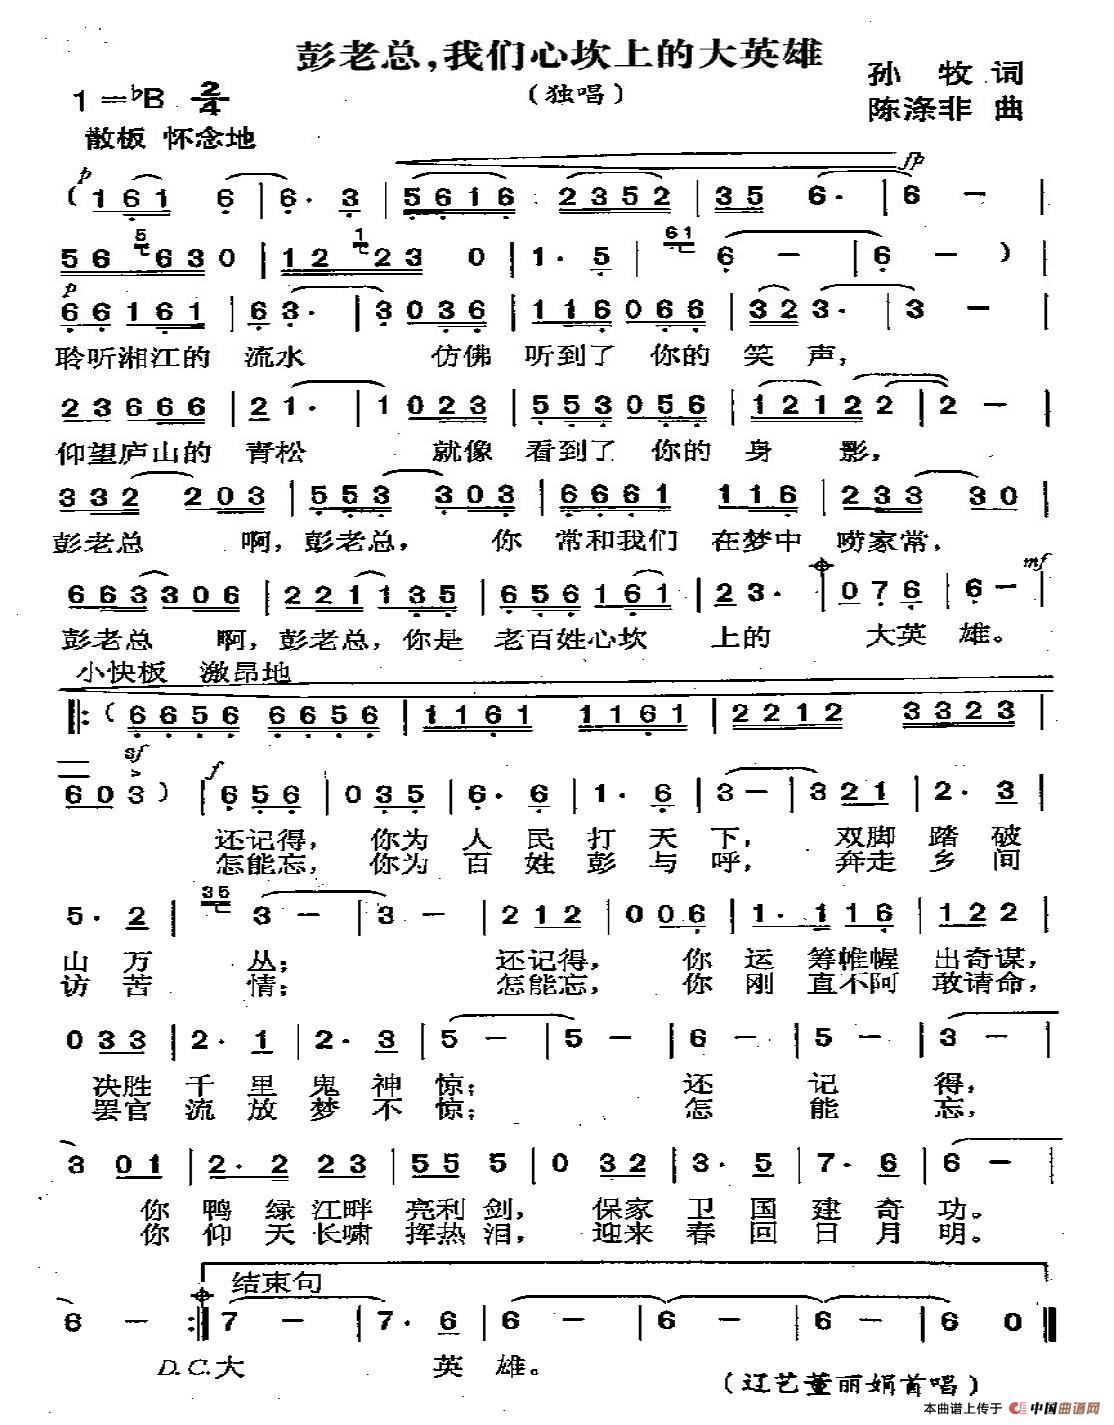 彭老总，我们心坎上的大英雄
（独唱）
孙 牧 词
陈涤非 曲
1=♭B 2/4
散板 怀念地
p fp
( 1 6 1 6 | 6· 3 | 5 6 1 6 2 3 5 2 | 3 5 6· | 6 － |
5 6 5 6 3 0 | 1 2 1 2 3 0 | 1· 5 | 6 1 6 － | 6 － ) |
p
6 6 1 6 1 | 6 3· | 3 0 3 6 | 1 1 6 0 6 6 | 3 2 3· | 3 － |
聆听湘江的 流水 仿佛 听到了 你的 笑 声，
2 3 6 6 6 | 2 1· | 1 0 2 3 | 5 5 3 0 5 6 | 1 2 1 2 2 | 2 － |
仰望庐山的 青松 就像 看到了 你的 身 影，
3 3 2 2 0 3 | 5 5 3 3 0 3 | 6 6 6 1 1 1 6 | 2 3 3 3 0 |
彭老总 啊，彭老总， 你 常和我们 在梦中 唠家常，
mf
6 6 3 3 0 6 | 2 2 1 1 3 5 | 6 5 6 1 6 1 | 2 3· | 0 7 6 | 6 － |
彭老总 啊，彭老总，你是 老百姓心坎 上的 大英 雄。
小快板 激昂地
‖: ( 6 6 5 6 6 6 5 6 | 1 1 6 1 1 1 6 1 | 2 2 1 2 3 3 2 3 |
sf f
6 0 3 ) | 6 5 6 | 0 3 5 | 6· 6 | 1· 6 | 3 － | 3 2 1 | 2· 3 |
还记得， 你为 人 民 打 天 下， 双脚 踏 破
怎能忘， 你为 百 姓 彭 与 呼， 奔走 乡 间
5· 2 | 3 5 3 － | 3 － | 2 1 2 | 0 0 6 | 1· 1 1 6 | 1 2 2 |
山 万 丛； 还记得， 你 运 筹帷幄 出奇谋，
访 苦 情； 怎能忘， 你 刚 直不阿 敢请命，
0 3 3 | 2· 1 | 2· 3 | 5 － | 5 － | 6 － | 5 － | 3 － |
决胜 千 里 鬼 神 惊； 还 记 得，
罢官 流 放 梦 不 惊； 怎 能 忘，
3 0 1 | 2· 2 2 3 | 5 5 5 | 0 3 2 | 3· 5 | 7· 6 | 6 － |
你 鸭 绿 江畔 亮利 剑， 保家 卫 国 建 奇 功。
你 仰 天 长啸 挥热 泪， 迎来 春 回 日 月 明。
结束句
6 － :‖ 7 － | 7· 6 | 6 － | 6 － | 6 － | 6 0 ‖
D.C. 大 英 雄。
（辽艺董丽娟首唱）
本曲谱上传于 中国曲谱网